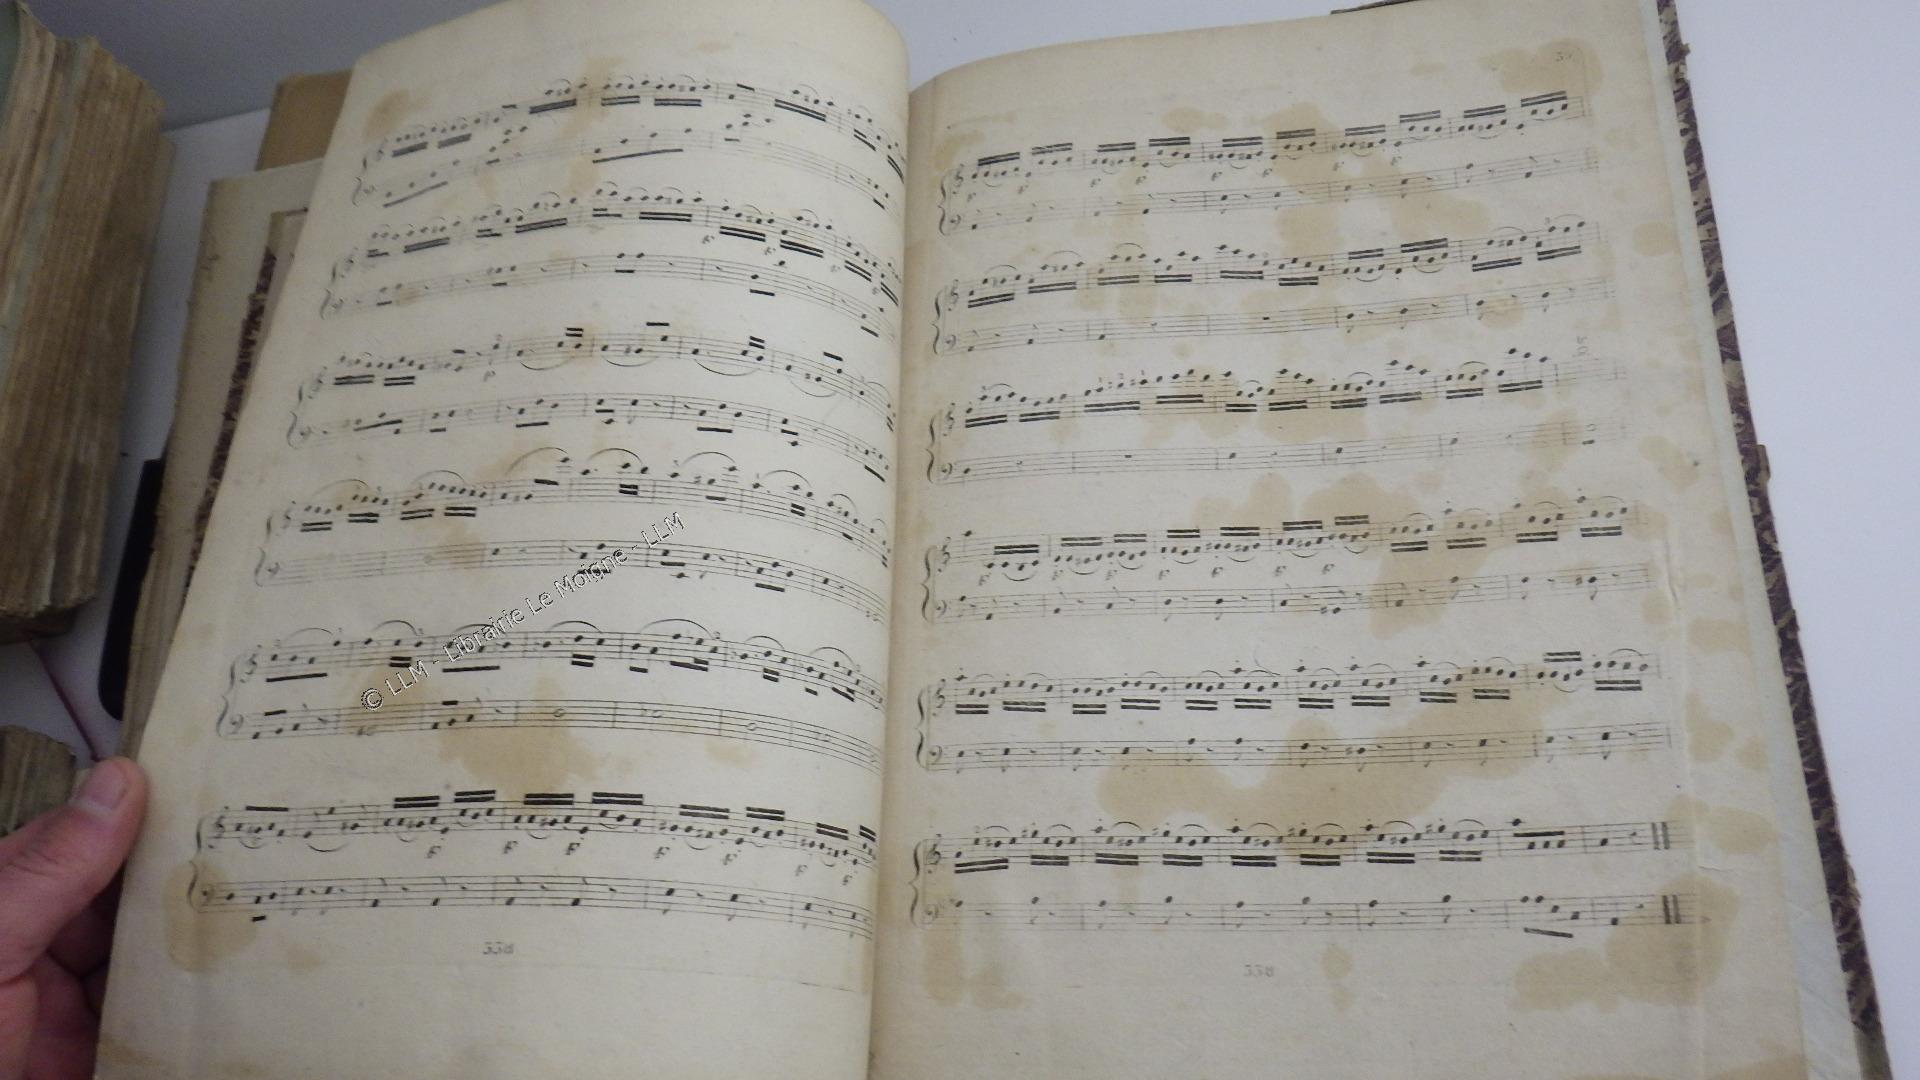 © LLM - Librairie Le Moigne - LLM
338
338